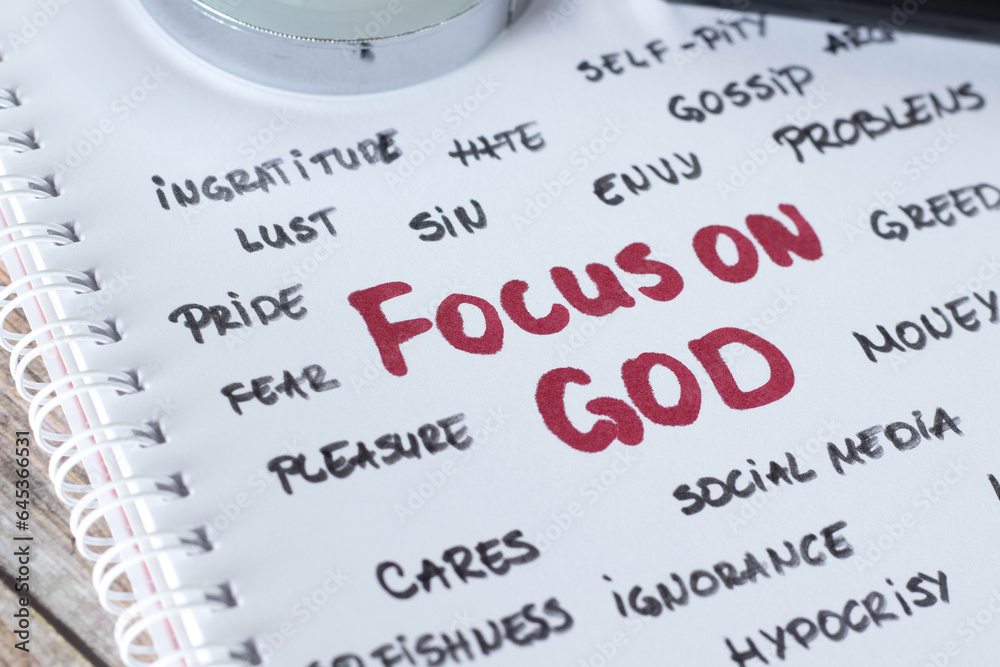 SELF-PITY
GOSSIP
PROBLEMS
INGRATITUDE HATE
ENVY
LUST SIN
GREED
PRIDE
FOCUS ON
GOD
MONEY
FEAR
PLEASURE
SOCIAL MEDIA
CARES
IGNORANCE
HYPOCRISY
Adobe Stock | #645366531